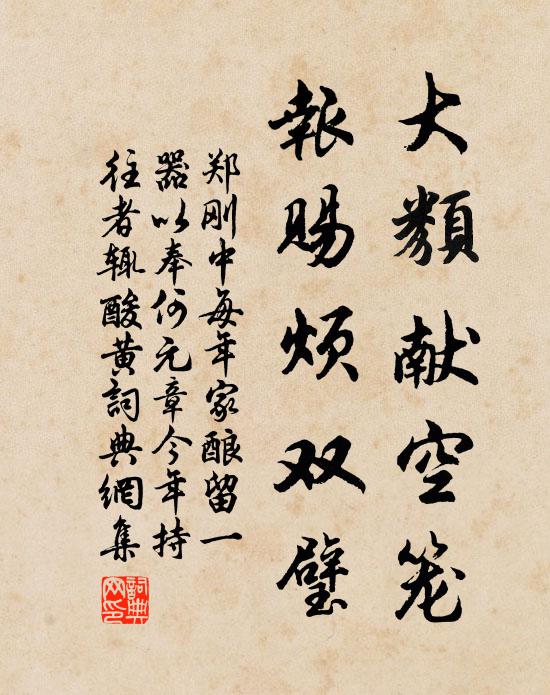 大類献空笼
報赐烦双璧
郑刚中每年家酿留一
器以奉何元章今年持
往者辄酸黄詞典網集